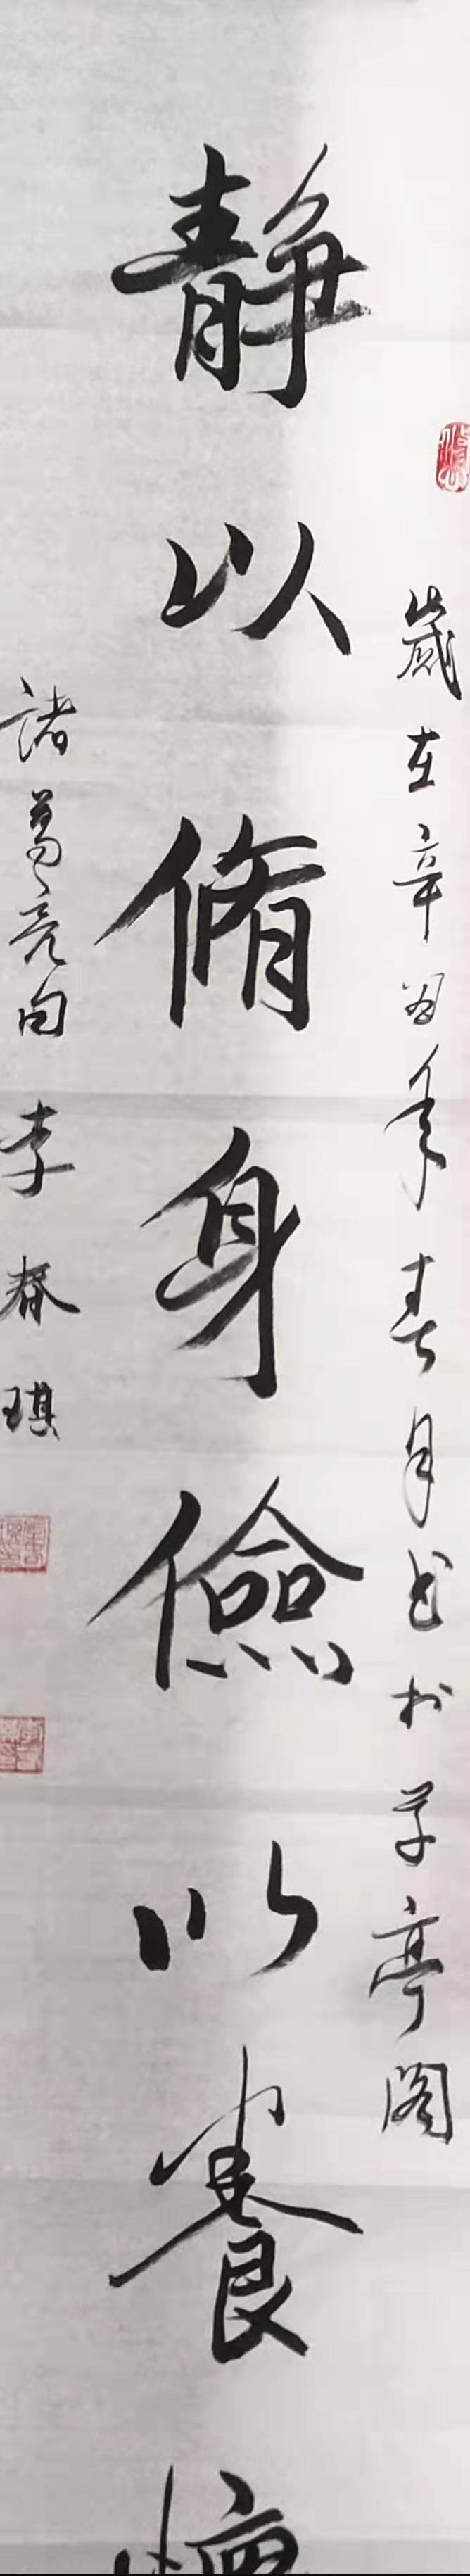 歲在辛丑年春月书於亭阁
静以脩身儉以養
諸葛亮句 李春琪